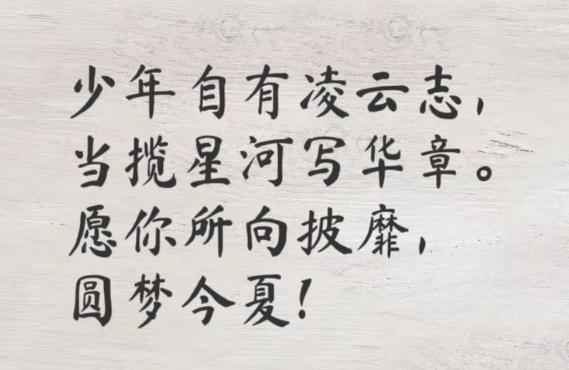 少年自有凌云志，
当揽星河写华章。
愿你所向披靡，
圆梦今夏！